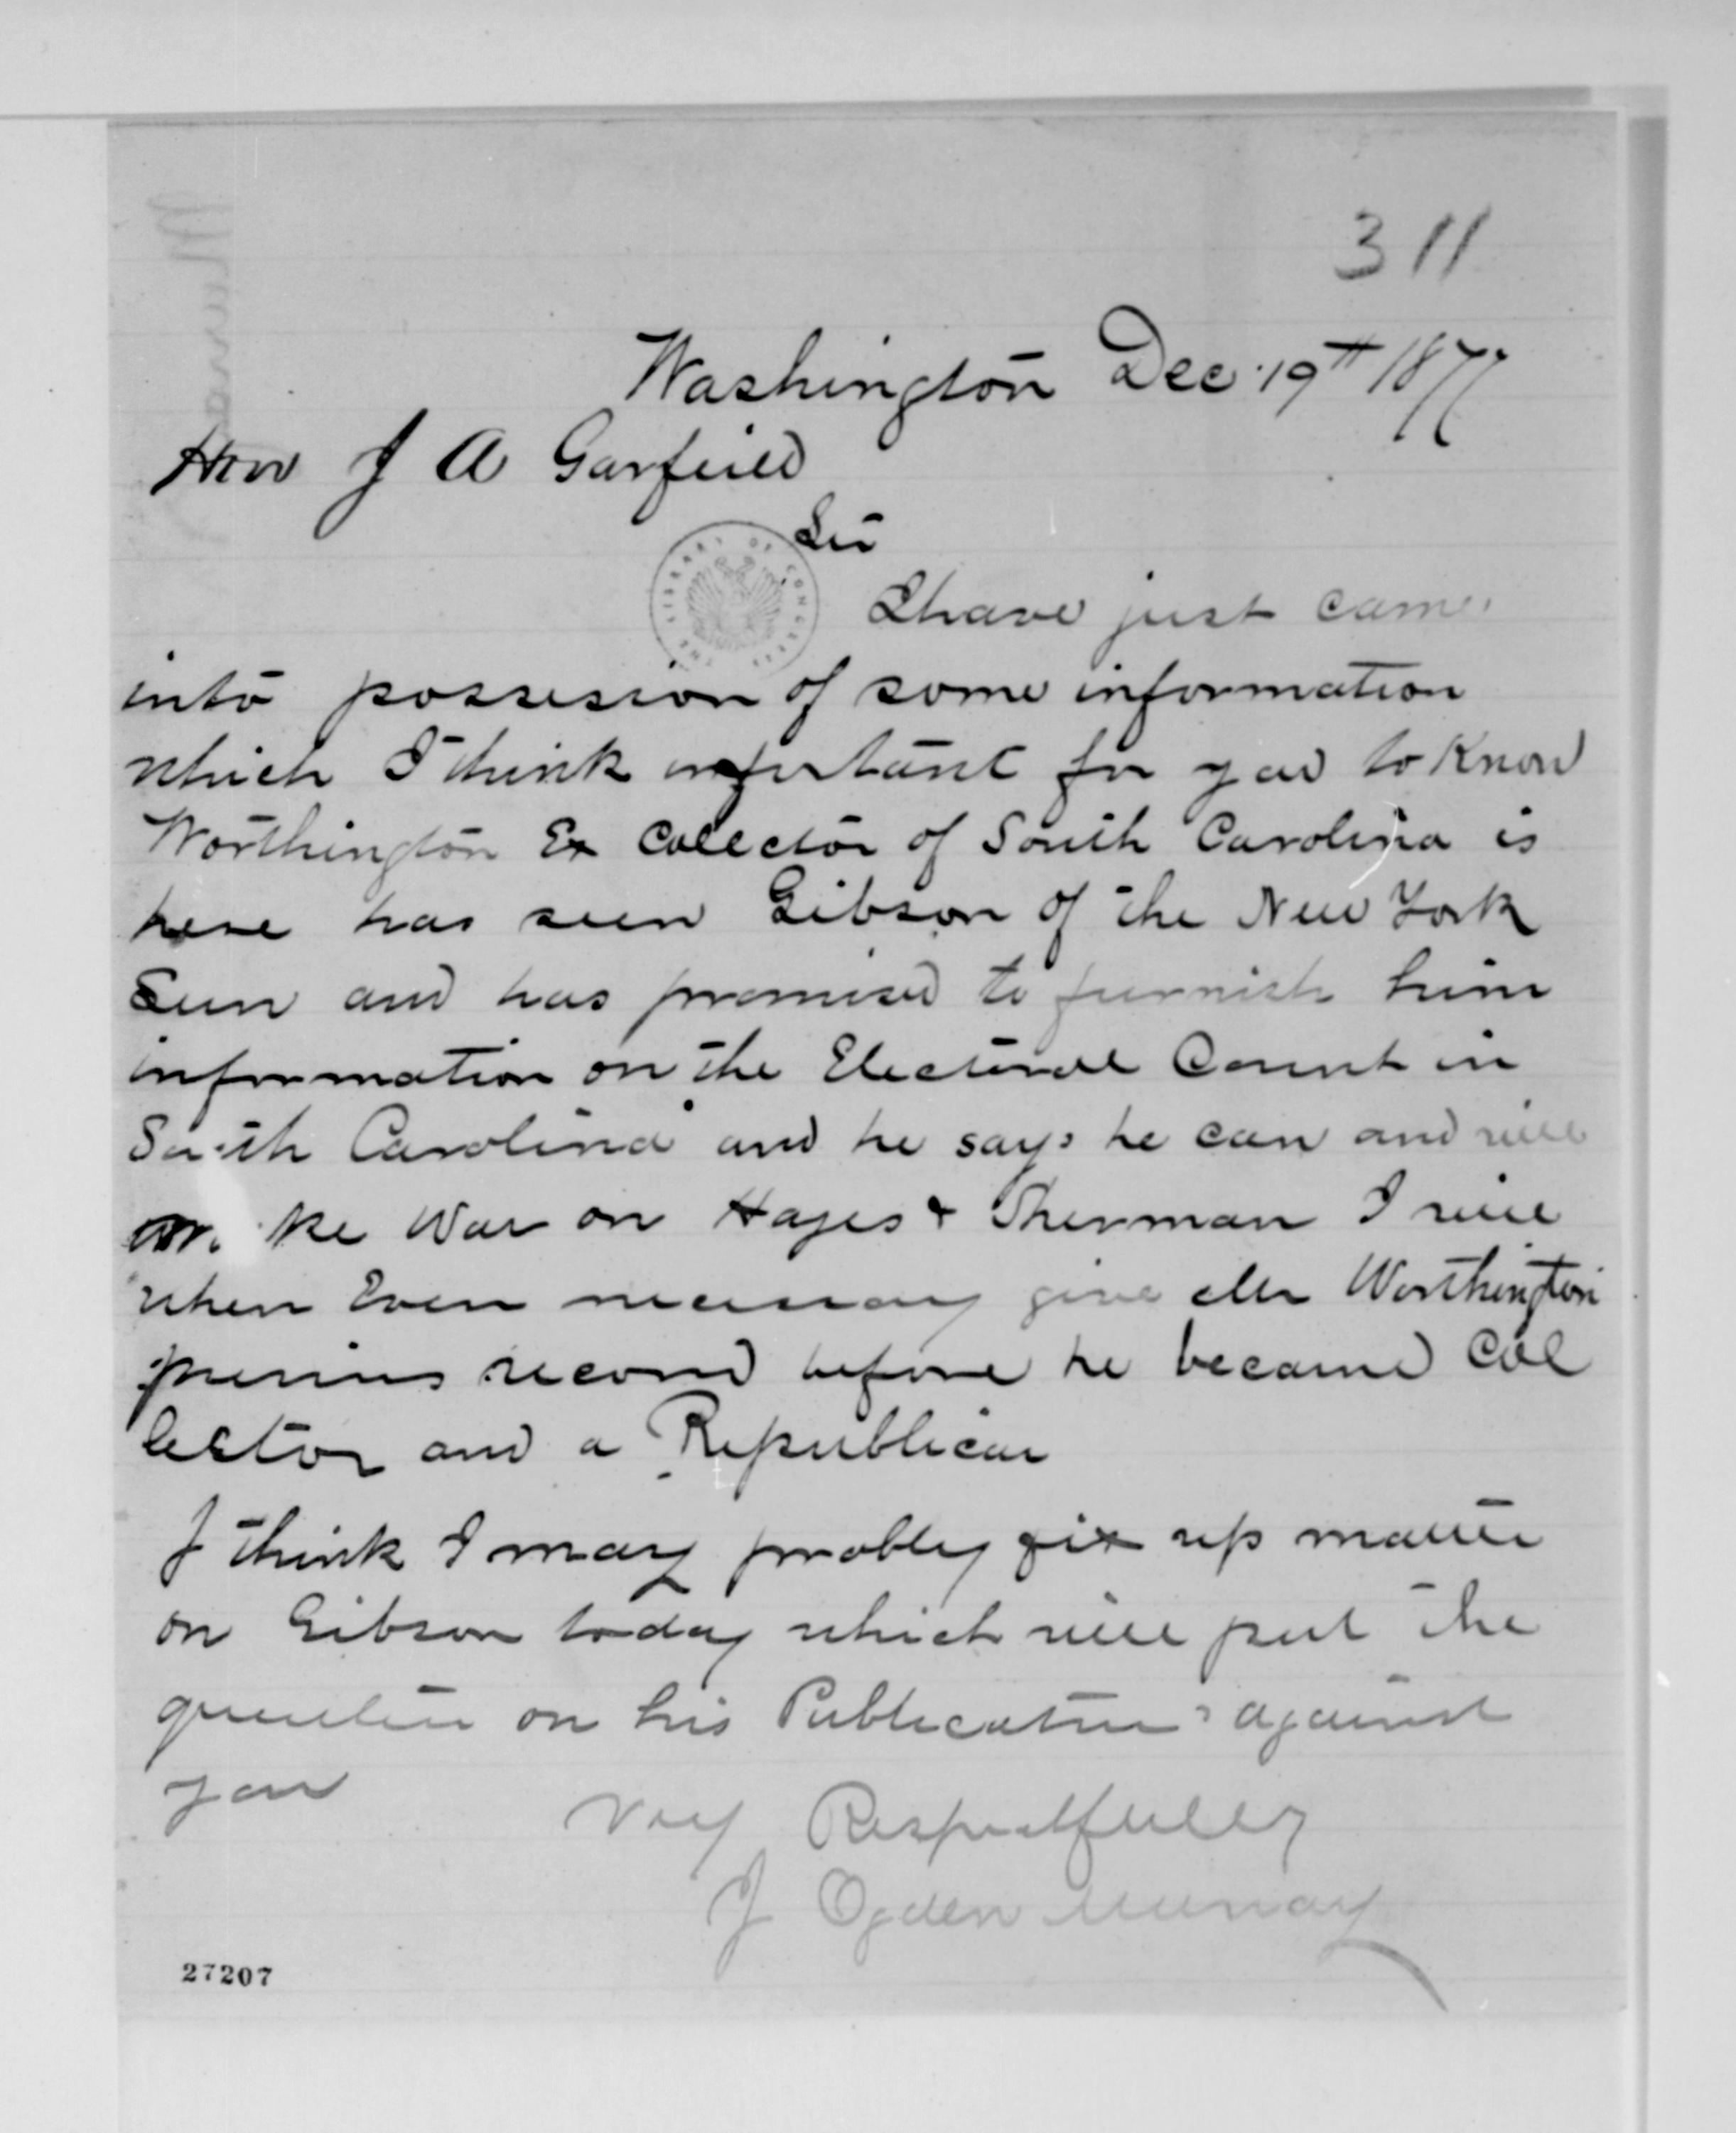 311
Washington Dec 19th 1877
Hon J A Garfield
Sir
THE LIBRARY OF CONGRESS
I have just came
into possession of some information
which I think important for you to Know
Worthington Ex Collector of South Carolina is
here has seen Gibson of the New York
Sun and has promised to furnish him
information on the Electoral Count in
South Carolina and he says he can and will
make War on Hayes & Sherman I will
when Even necessary give Mr Worthington
previous record before he became Col
lector and a Republican
I think I may probley fix up matter
on Gibson today which will put the
on his Publications against
you
Very Respectfully
J Ogden Murray
27207